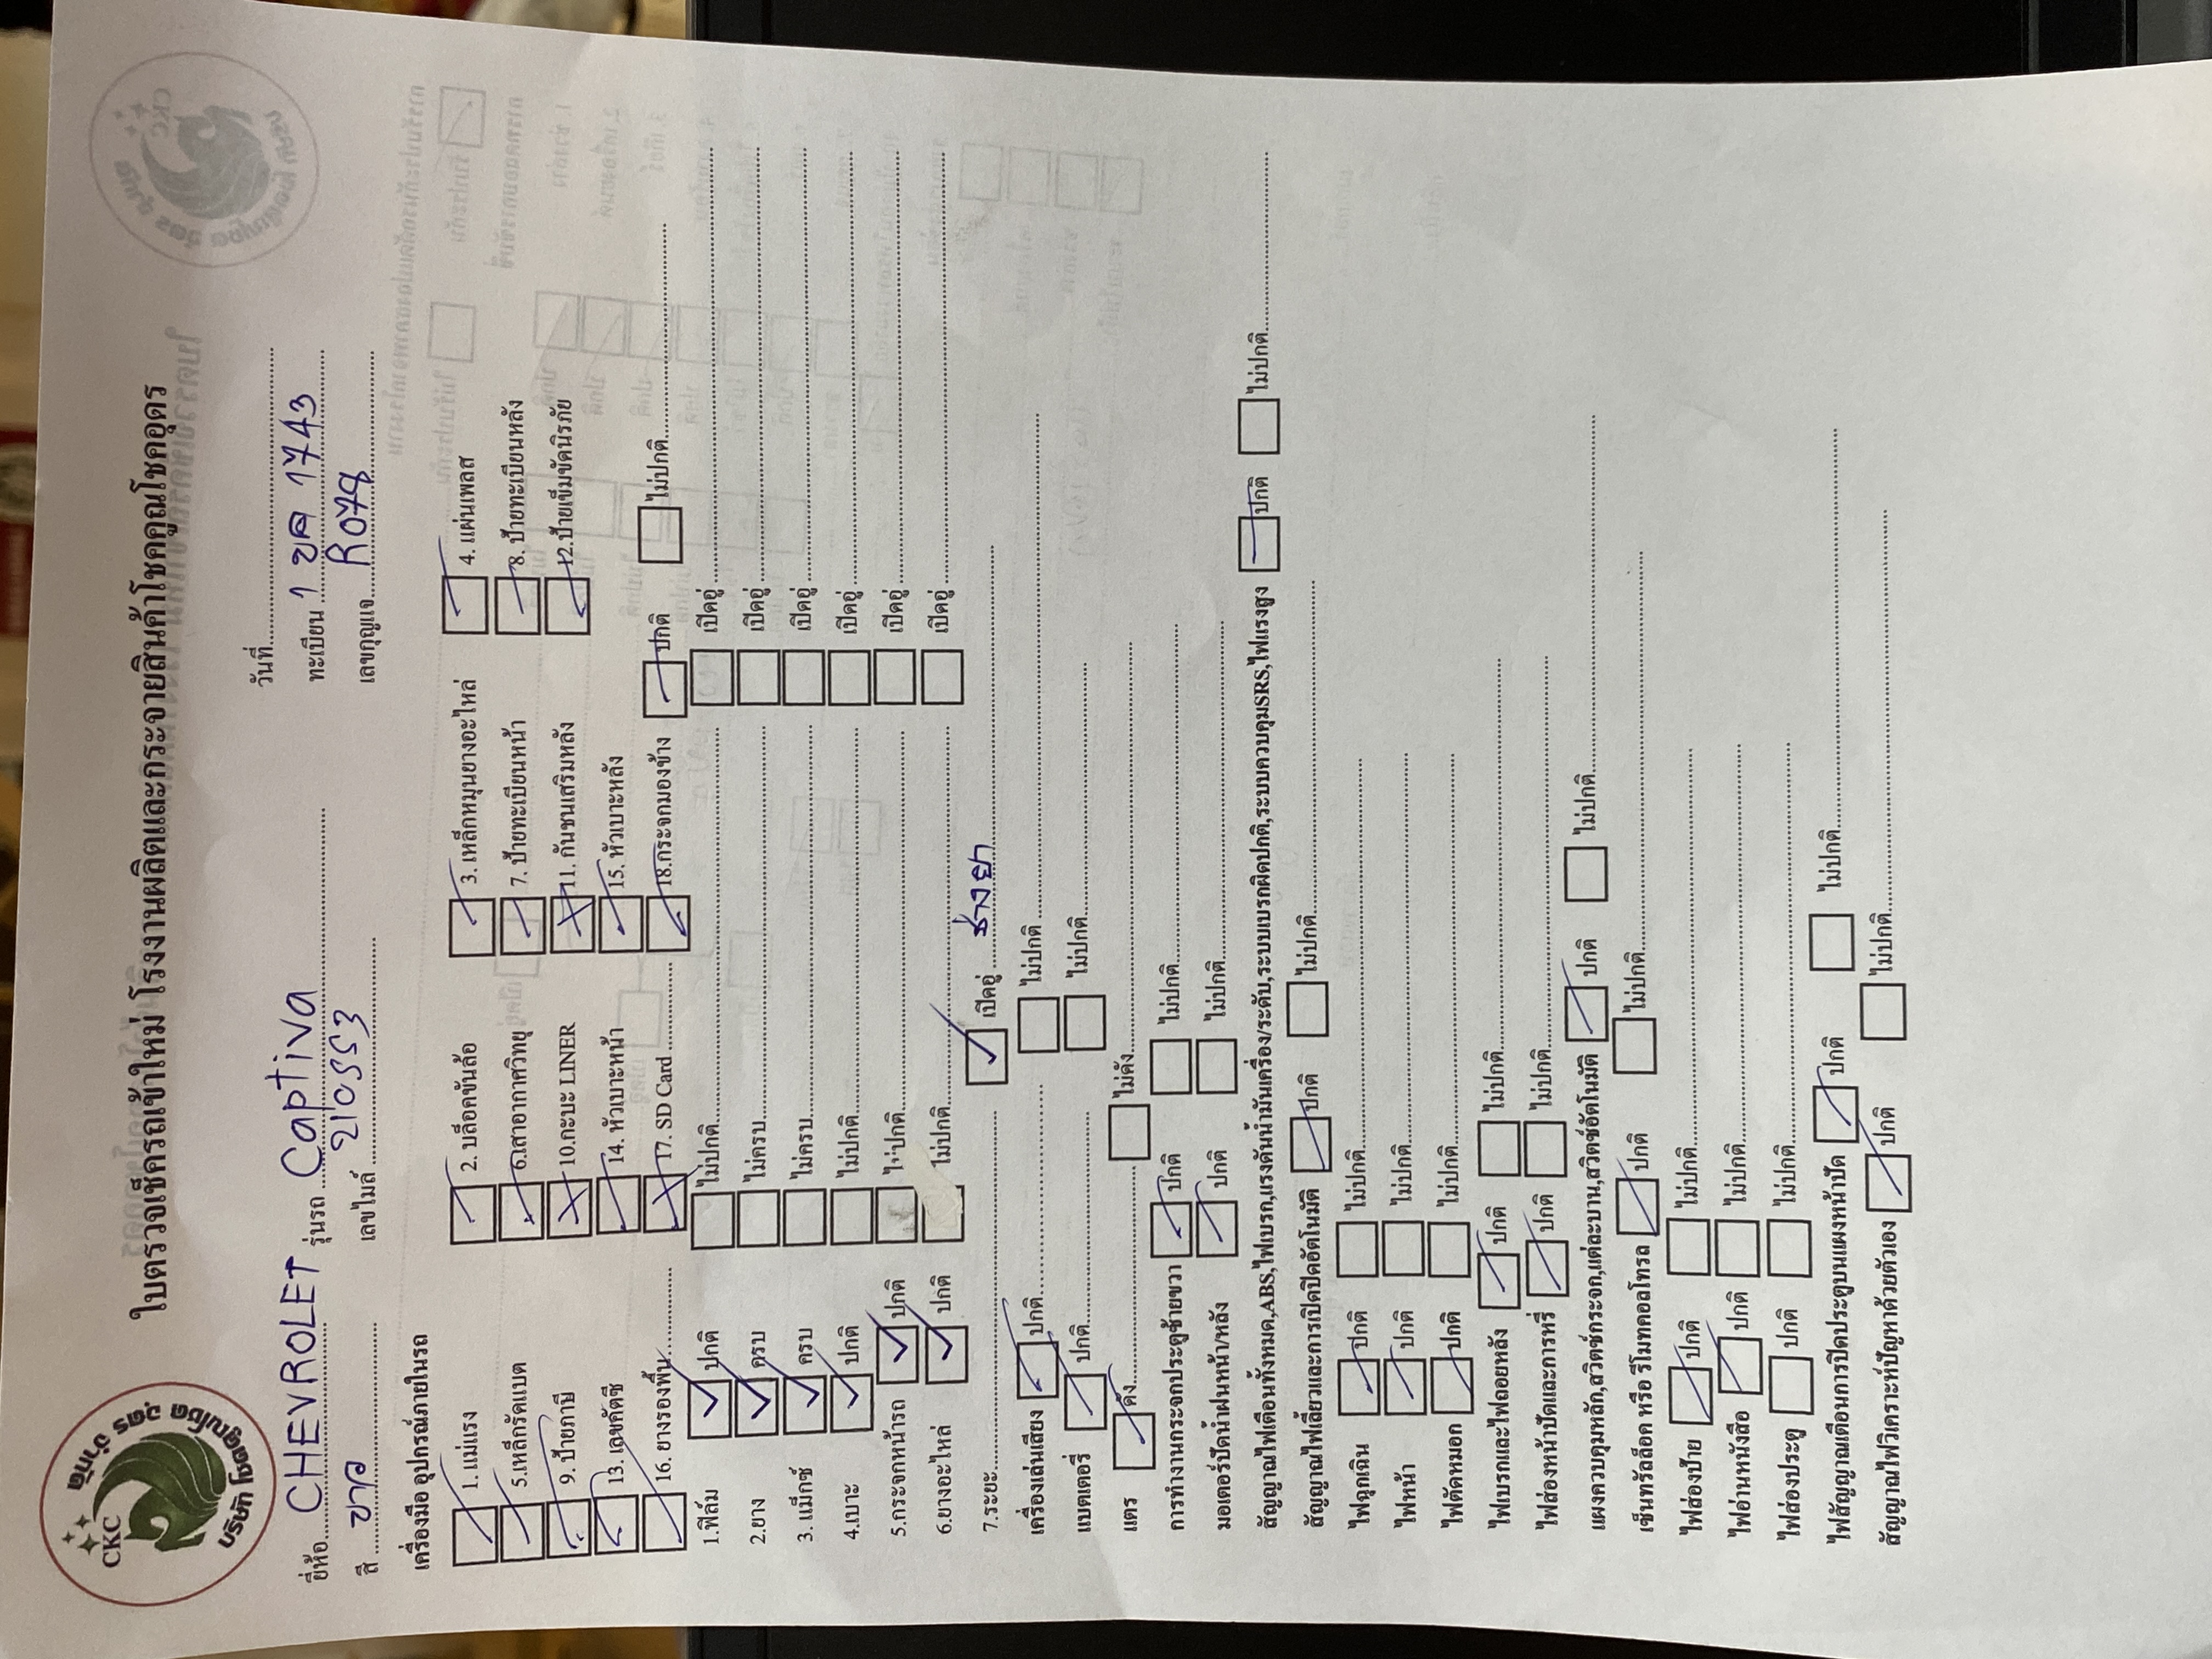 CKC
ใบตรวจเช็ครถเข้าใหม่ โรงงานผลิตและกระจายสินค้าโชคคูณโชคอุดร
วันที่
ยี่ห้อ CHEVROLET รุ่นรถ Captiva ทะเบียน 1 ขค 1743
สี ขาว เลขไมล์ 210553 เลขกุญแจ R078
เครื่องมือ อุปกรณ์ภายในรถ
1. แม่แรง 2. บล็อคขันล้อ 3. เหล็กหมุนยางอะไหล่ 4. แผ่นเพลส
5.เหล็กรัดแบต 6.เสาอากาศวิทยุ 7. ป้ายทะเบียนหน้า 8. ป้ายทะเบียนหลัง
9. ป้ายภาษี 10.กะบะ LINER 11. กันชนเสริมหลัง 12.ป้ายเข็มขัดนิรภัย
13. เลขคัตซ 14. หัวเบาะหน้า 15. หัวเบาะหลัง
16. ยางรองพื้น 17. SD Card 18.กระจกมองข้าง ปกติ ไม่ปกติ
1.ฟิล์ม ปกติ ไม่ปกติ เปิดอู่
2.ยาง ครบ ไม่ครบ เปิดอู่
3. แม็กซ์ ครบ ไม่ครบ เปิดอู่
4.เบาะ ปกติ ไม่ปกติ เปิดอู่
5.กระจกหน้ารถ ปกติ ไม่ปกติ เปิดอู่
6.ยางอะไหล่ ปกติ ไม่ปกติ เปิดอู่
7.ระยะ เปิดอู่ ช่างยา
เครื่องเล่นเสียง ปกติ ไม่ปกติ
แบตเตอรี่ ปกติ ไม่ปกติ
แตร ดัง ไม่ดัง
การทำงานกระจกประตูซ้ายขวา ปกติ ไม่ปกติ
มอเตอร์ปัดน้ำฝนหน้า/หลัง ปกติ ไม่ปกติ
สัญญาณไฟเตือนทั้งหมด,ABS,ไฟเบรก,แรงดันน้ำมันเครื่อง/ระดับ,ระบบเบรกผิดปกติ,ระบบควบคุมSRS,ไฟแรงสูง ปกติ ไม่ปกติ
สัญญาณไฟเลี้ยวและการเปิดปิดอัตโนมัติ ปกติ ไม่ปกติ
ไฟฉุกเฉิน ปกติ ไม่ปกติ
ไฟหน้า ปกติ ไม่ปกติ
ไฟตัดหมอก ปกติ ไม่ปกติ
ไฟเบรกและไฟถอยหลัง ปกติ ไม่ปกติ
ไฟส่องหน้าปัดและการหรี่ ปกติ ไม่ปกติ
แผงควบคุมหลัก,สวิตช์กระจก,แต่ละบาน,สวิตช์อัตโนมัติ ปกติ ไม่ปกติ
เซ็นทรัลล็อค หรือ รีโมทคอลโทรล ปกติ ไม่ปกติ
ไฟส่องป้าย ปกติ ไม่ปกติ
ไฟอ่านหนังสือ ปกติ ไม่ปกติ
ไฟส่องประตู ปกติ ไม่ปกติ
ไฟสัญญาณเตือนการปิดประตูบนแผงหน้าปัด ปกติ ไม่ปกติ
สัญญาณไฟวิเคราะห์ปัญหาด้วยตัวเอง ปกติ ไม่ปกติ